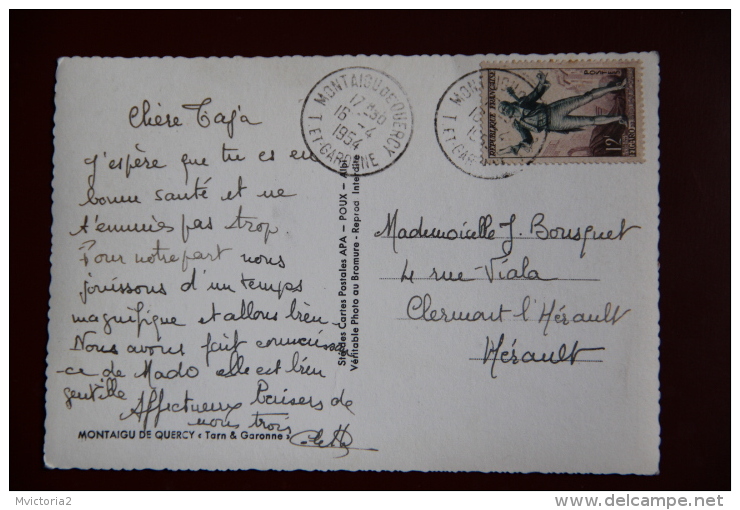 Chère Taja
J'espère que tu es en
bonne santé et ne
t'ennuies pas trop.
Pour notre part nous
jouissons d'un temps
magnifique et allons bien.
Nous avons fait connaissan
-ce de Mado elle est bien
gentille
Affectueux baisers de
nous trois
Colette
MONTAIGU DE QUERCY « Tarn & Garonne »
Sté des Cartes Postales APA — POUX — Albi
Véritable Photo au Bromure - Reprod Interdite
MONTAIGU DE QUERCY
17 H 30
16 - 4
1954
T. ET-GARONNE
MONTAIGU
T. ET-GARONNE
REPUBLIQUE FRANÇAISE
12F
Mademoiselle J. Bousquet
4 rue Viala
Clermont l'Hérault
Hérault
Mvictoria2
delcampe.net